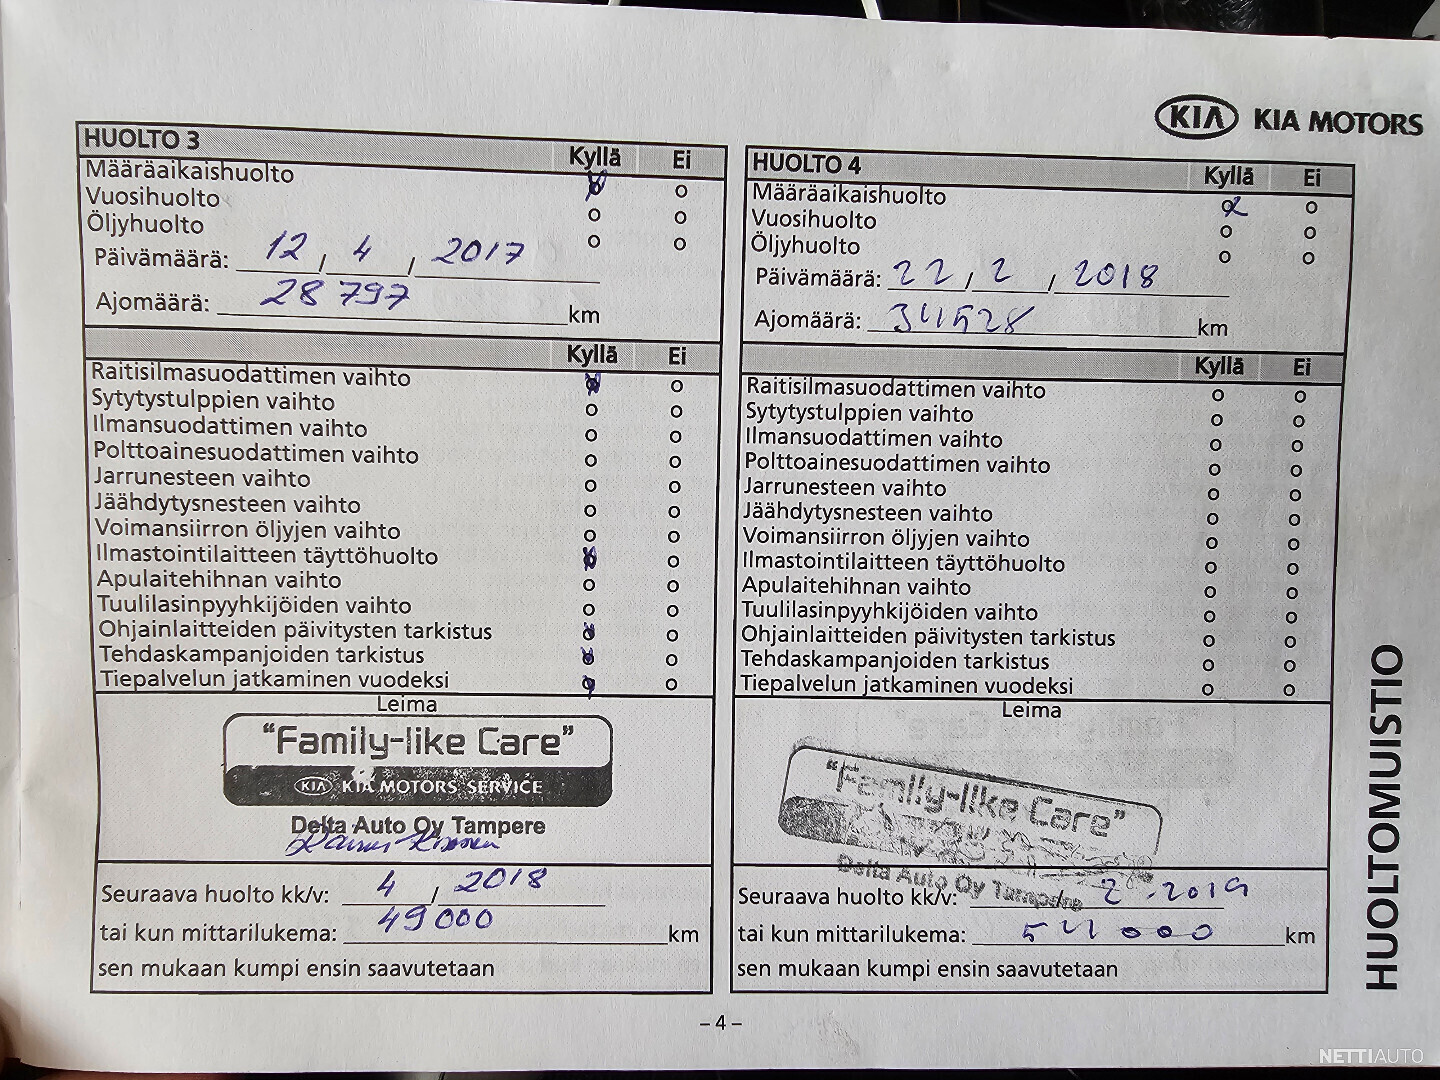 KIA KIA MOTORS
HUOLTO 3
Kyllä Ei
Määräaikaishuolto
Vuosihuolto
Öljyhuolto
Päivämäärä: 12 / 4 / 2017
Ajomäärä: 28 797 km
Kyllä Ei
Raitisilmasuodattimen vaihto
Sytytystulppien vaihto
Ilmansuodattimen vaihto
Polttoainesuodattimen vaihto
Jarrunesteen vaihto
Jäähdytysnesteen vaihto
Voimansiirron öljyjen vaihto
Ilmastointilaitteen täyttöhuolto
Apulaitehihnan vaihto
Tuulilasinpyyhkijöiden vaihto
Ohjainlaitteiden päivitysten tarkistus
Tehdaskampanjoiden tarkistus
Tiepalvelun jatkaminen vuodeksi
Leima
"Family-like Care"
KIA KIA MOTORS SERVICE
Delta Auto Oy Tampere
Seuraava huolto kk/v: 4 / 2018
tai kun mittarilukema: 49000 km
sen mukaan kumpi ensin saavutetaan
HUOLTO 4
Kyllä Ei
Määräaikaishuolto
Vuosihuolto
Öljyhuolto
Päivämäärä: 22 / 2 / 2018
Ajomäärä: 34528 km
Kyllä Ei
Raitisilmasuodattimen vaihto
Sytytystulppien vaihto
Ilmansuodattimen vaihto
Polttoainesuodattimen vaihto
Jarrunesteen vaihto
Jäähdytysnesteen vaihto
Voimansiirron öljyjen vaihto
Ilmastointilaitteen täyttöhuolto
Apulaitehihnan vaihto
Tuulilasinpyyhkijöiden vaihto
Ohjainlaitteiden päivitysten tarkistus
Tehdaskampanjoiden tarkistus
Tiepalvelun jatkaminen vuodeksi
Leima
"Family-like Care"
Delta Auto Oy Tampere
Seuraava huolto kk/v: / 2 . 2019
tai kun mittarilukema: 54000 km
sen mukaan kumpi ensin saavutetaan
HUOLTOMUISTIO
– 4 –
NETTIAUTO